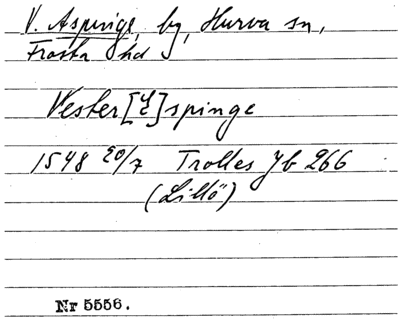 V. Aspinge, by, Hurva sn,
Frosta hd
Vester[E]spinge
1548 20/7 Trolles Jb 266
(Lillö)
Nr 5556.